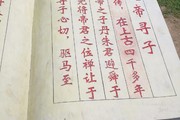 帝寻子
传，在上古四千多年
之子丹朱君避舜于
尧将帝君之位禅让于
子子心切，驱马至